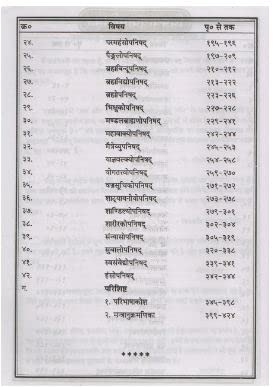 क्र० विषय पृ० से तक
२४. परमहंसोपनिषद् १९५-१९६
२५. पैङ्गलोपनिषद् १९७-२०९
२६. ब्रह्मबिन्दूपनिषद् २१०-२१२
२७. ब्रह्मविद्योपनिषद् २१३-२२२
२८. ब्रह्मोपनिषद् २२३-२२६
२९. भिक्षुकोपनिषद् २२७-२२८
३०. मण्डलब्राह्मणोपनिषद् २२९-२४१
३१. महावाक्योपनिषद् २४२-२४४
३२. मैत्रेय्युपनिषद् २४५-२५३
३३. याज्ञवल्क्योपनिषद् २५४-२५८
३४. योगतत्त्वोपनिषद् २५९-२७०
३५. वज्रसूचिकोपनिषद् २७१-२७२
३६. शाट्यायनीयोपनिषद् २७३-२७८
३७. शाण्डिल्योपनिषद् २७९-३०१
३८. शारीरकोपनिषद् ३०२-३०४
३९. संन्यासोपनिषद् ३०५-३१९
४०. सुबालोपनिषद् ३२०-३३८
४१. स्वसंवेद्योपनिषद् ३३९-३४१
४२. हंसोपनिषद् ३४२-३४४
ग. परिशिष्ट
१. परिभाषाकोश ३४५-३९८
२. मन्त्रानुक्रमणिका ३९९-४२४
*****